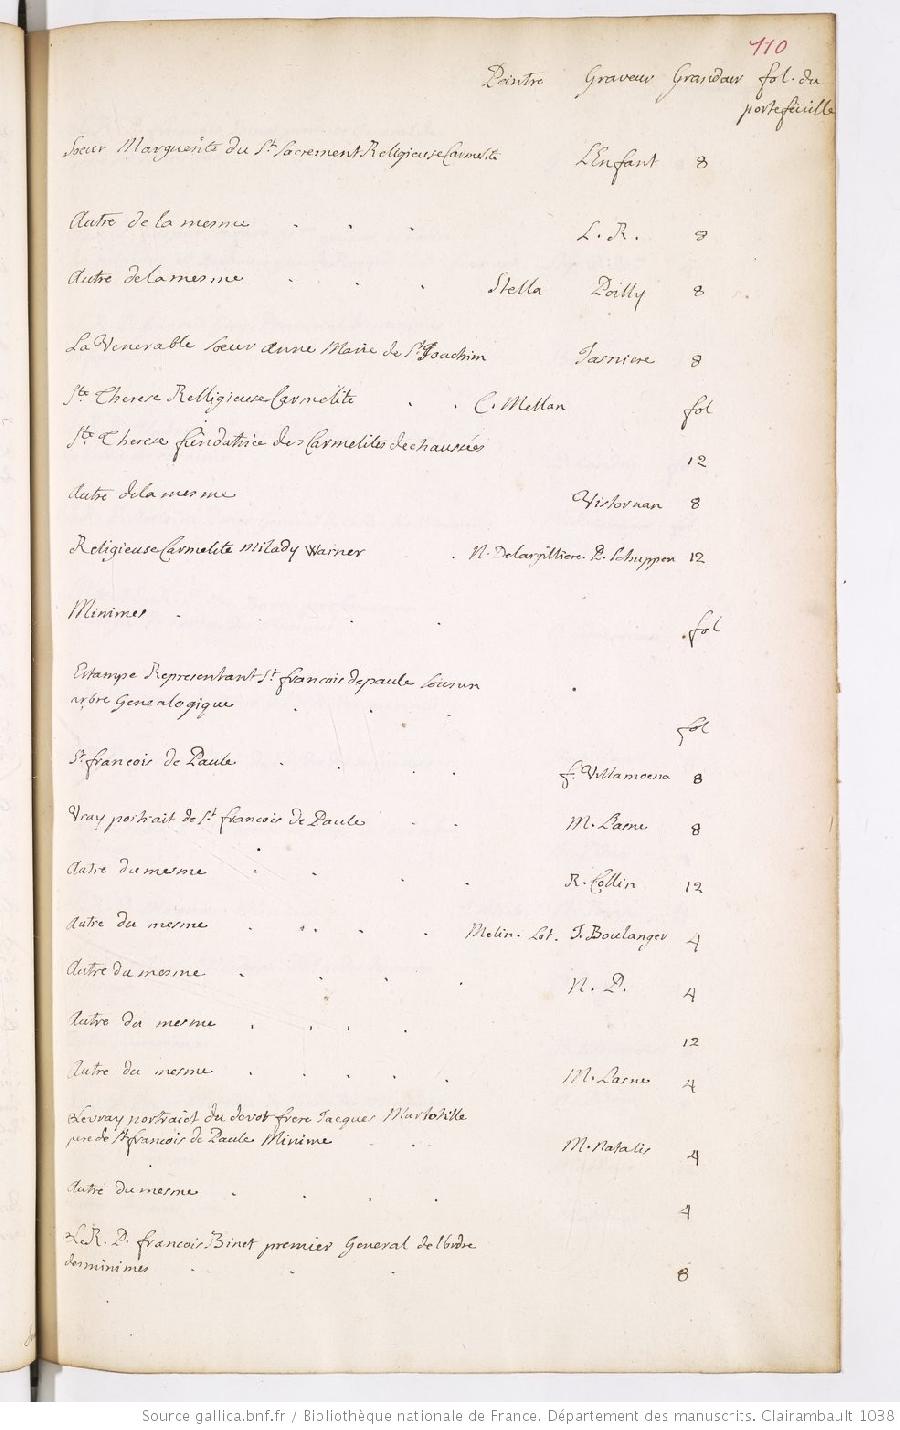 110
Peintre Graveur Grandeur fol. du
portefeuille
Sœur Marguerite du St. Sacrement Religieuse Carmelite L'Enfant 8
Autre de la mesme L. R. 8
Autre de la mesme Stella Poilly 8
La Venerable sœur Anne Marie de St. Joachim Jasniere 8
Ste. Therese Relligieuse Carmelite C. Mellan fol
Ste. Therese fundatrice des Carmelites dechaussées 12
Autre de la mesme 8
Religieuse Carmelite Milady Warner N. Delargilliere P. Schuppen 12
Minimes fol
Estampe Representant St. francois de paule sous un
arbre Genealogique fol
St. francois de Paule f. Villamoena 8
Vray portrait de St. francois de Paule M. Lasne 8
Autre du mesme R. Collin 12
Autre du mesme Melin. Lot. J. Boulanger 4
Autre du mesme N. P. 4
Autre du mesme 12
Autre du mesme M. Lasne 4
Le vray portraict du devot frere Jacques Martotille
pere de St. francois de Paule Minime M. Natalis 4
Autre du mesme 4
Le R. P. francois Binet premier General de l'ordre
des minimes 8
Source gallica.bnf.fr / Bibliothèque nationale de France. Département des manuscrits. Clairambault 1038